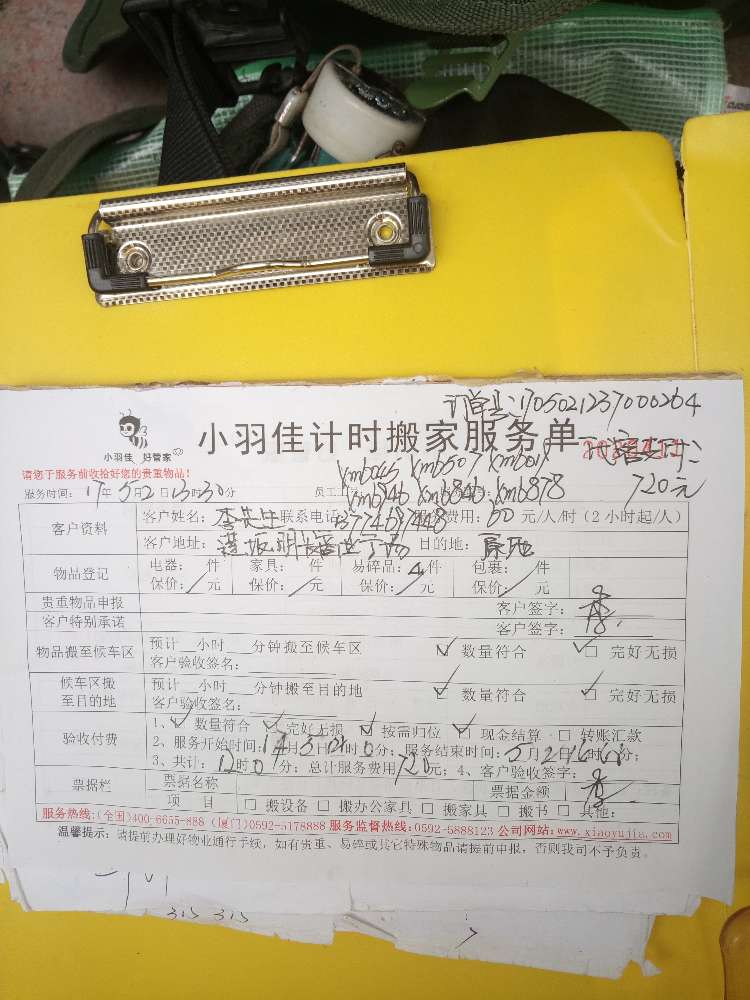 订单号:1705021237000264
小羽佳 好管家
小羽佳计时搬家服务单
请您于服务前收拾好您的贵重物品!
xm5507
720元
服务时间: 17年5月2日13时30分 员工
xm6846 xm6878
客户资料
客户姓名: 李先生 联系电话 费用: 60元/人/时(2小时起/人)
客户地址: 目的地: 原地
物品登记
电器: 件 家具: 件 易碎品: 4件 包裹: 件
保价: 元 保价: 元 保价: 元 保价: 元
贵重物品申报 客户签字: 李
客户特别承诺 客户签字:
物品搬至候车区
预计__小时___分钟搬至候车区 数量符合 完好无损
客户验收签名:
候车区搬至目的地
预计__小时___分钟搬至目的地 数量符合 完好无损
客户验收签名:
验收付费
1、数量符合 完好无损 按需归位 现金结算 转账汇款
2、服务开始时间: 服务结束时间: 5月2日16时 分;
3、共计: 12时0分; 总计服务费用720元; 4、客户验收签字: 李
票据栏
票据名称 票据金额
项 目 搬设备 搬办公家具 搬家具 搬书 其他:
服务热线:(全国)400-6655-888 (厦门)0592-5178888 服务监督热线:0592-5888123 公司网站:www.xiaoyujia.com
温馨提示: 请提前办理好物业通行手续, 如有贵重、易碎或其它特殊物品请提前申报, 否则我司不予负责。
315 315